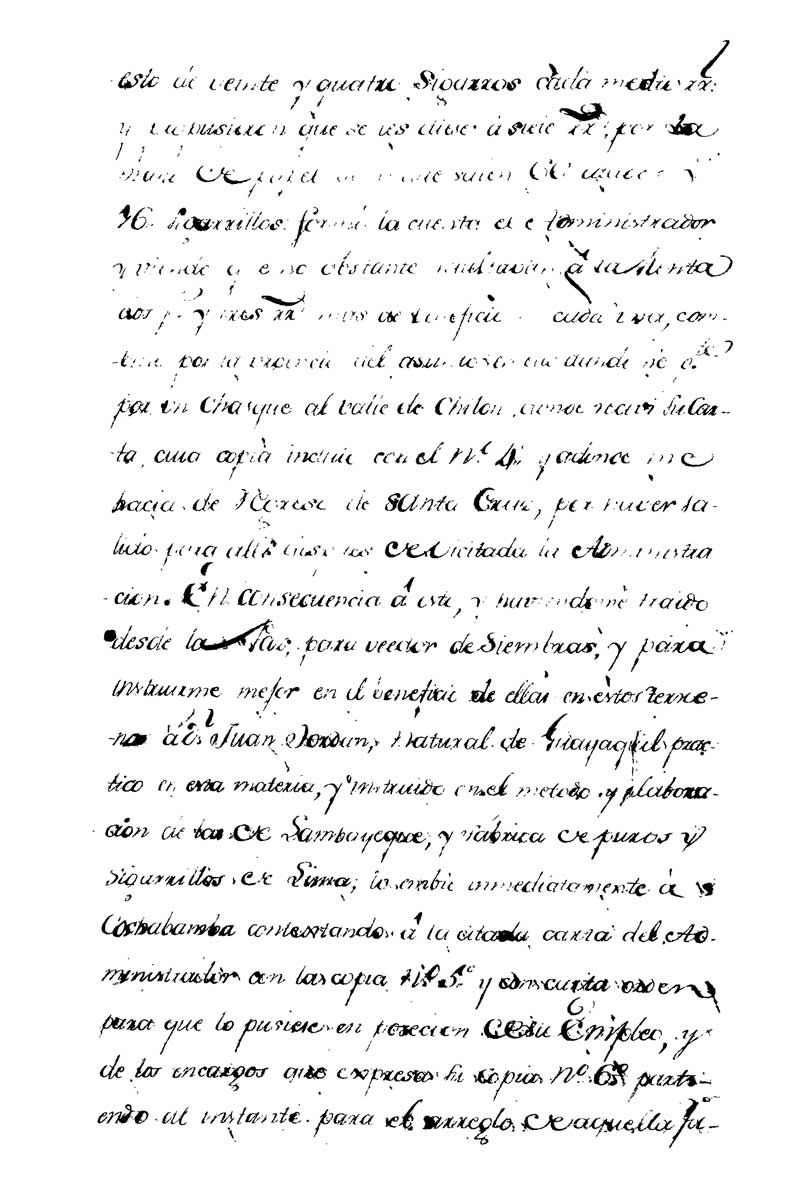 esto de veinte y quatro Sigarros cada medio rr.
y que se les diese á siete rr. por la
mano de papel
76 Sigarrillos: formó la cuenta el Administrador
y viendo q.e no obstante á la Renta
dos p.s y tres rr.s mas de beneficio cada una, com-
por la urgencia del asunto
por un Chasque al valle de Chilon, donde recivi su Car-
ta, cuia copia incluio con el N.º 4. y adonde me
hacia de Regreso de Santa Cruz, por haver sa-
lido para alli visitada la Administra
cion. En consecuencia á esto, y haviendome traido
desde la Paz, para veedor de Siembras, y para
instruirme mejor en el beneficio de ellas en estos terre-
nos á D.n Juan Jordan, Natural de Guayaquil prac-
tico en esta materia, y instruido en el metodo y elabora-
cion de las de Lambayeque, y fabrica de puros y
Sigarrillos de Lima; lo embie inmediatamente á
Cochabamba contestando á la citada carta del Ad-
ministrador con la copia N.º 5.º y con orden
para que lo pusiese en posecion de su Empleo, y
de los encargos que expresa su copia N.º 6.º parti-
endo al instante para el arreglo de aquella Fa-